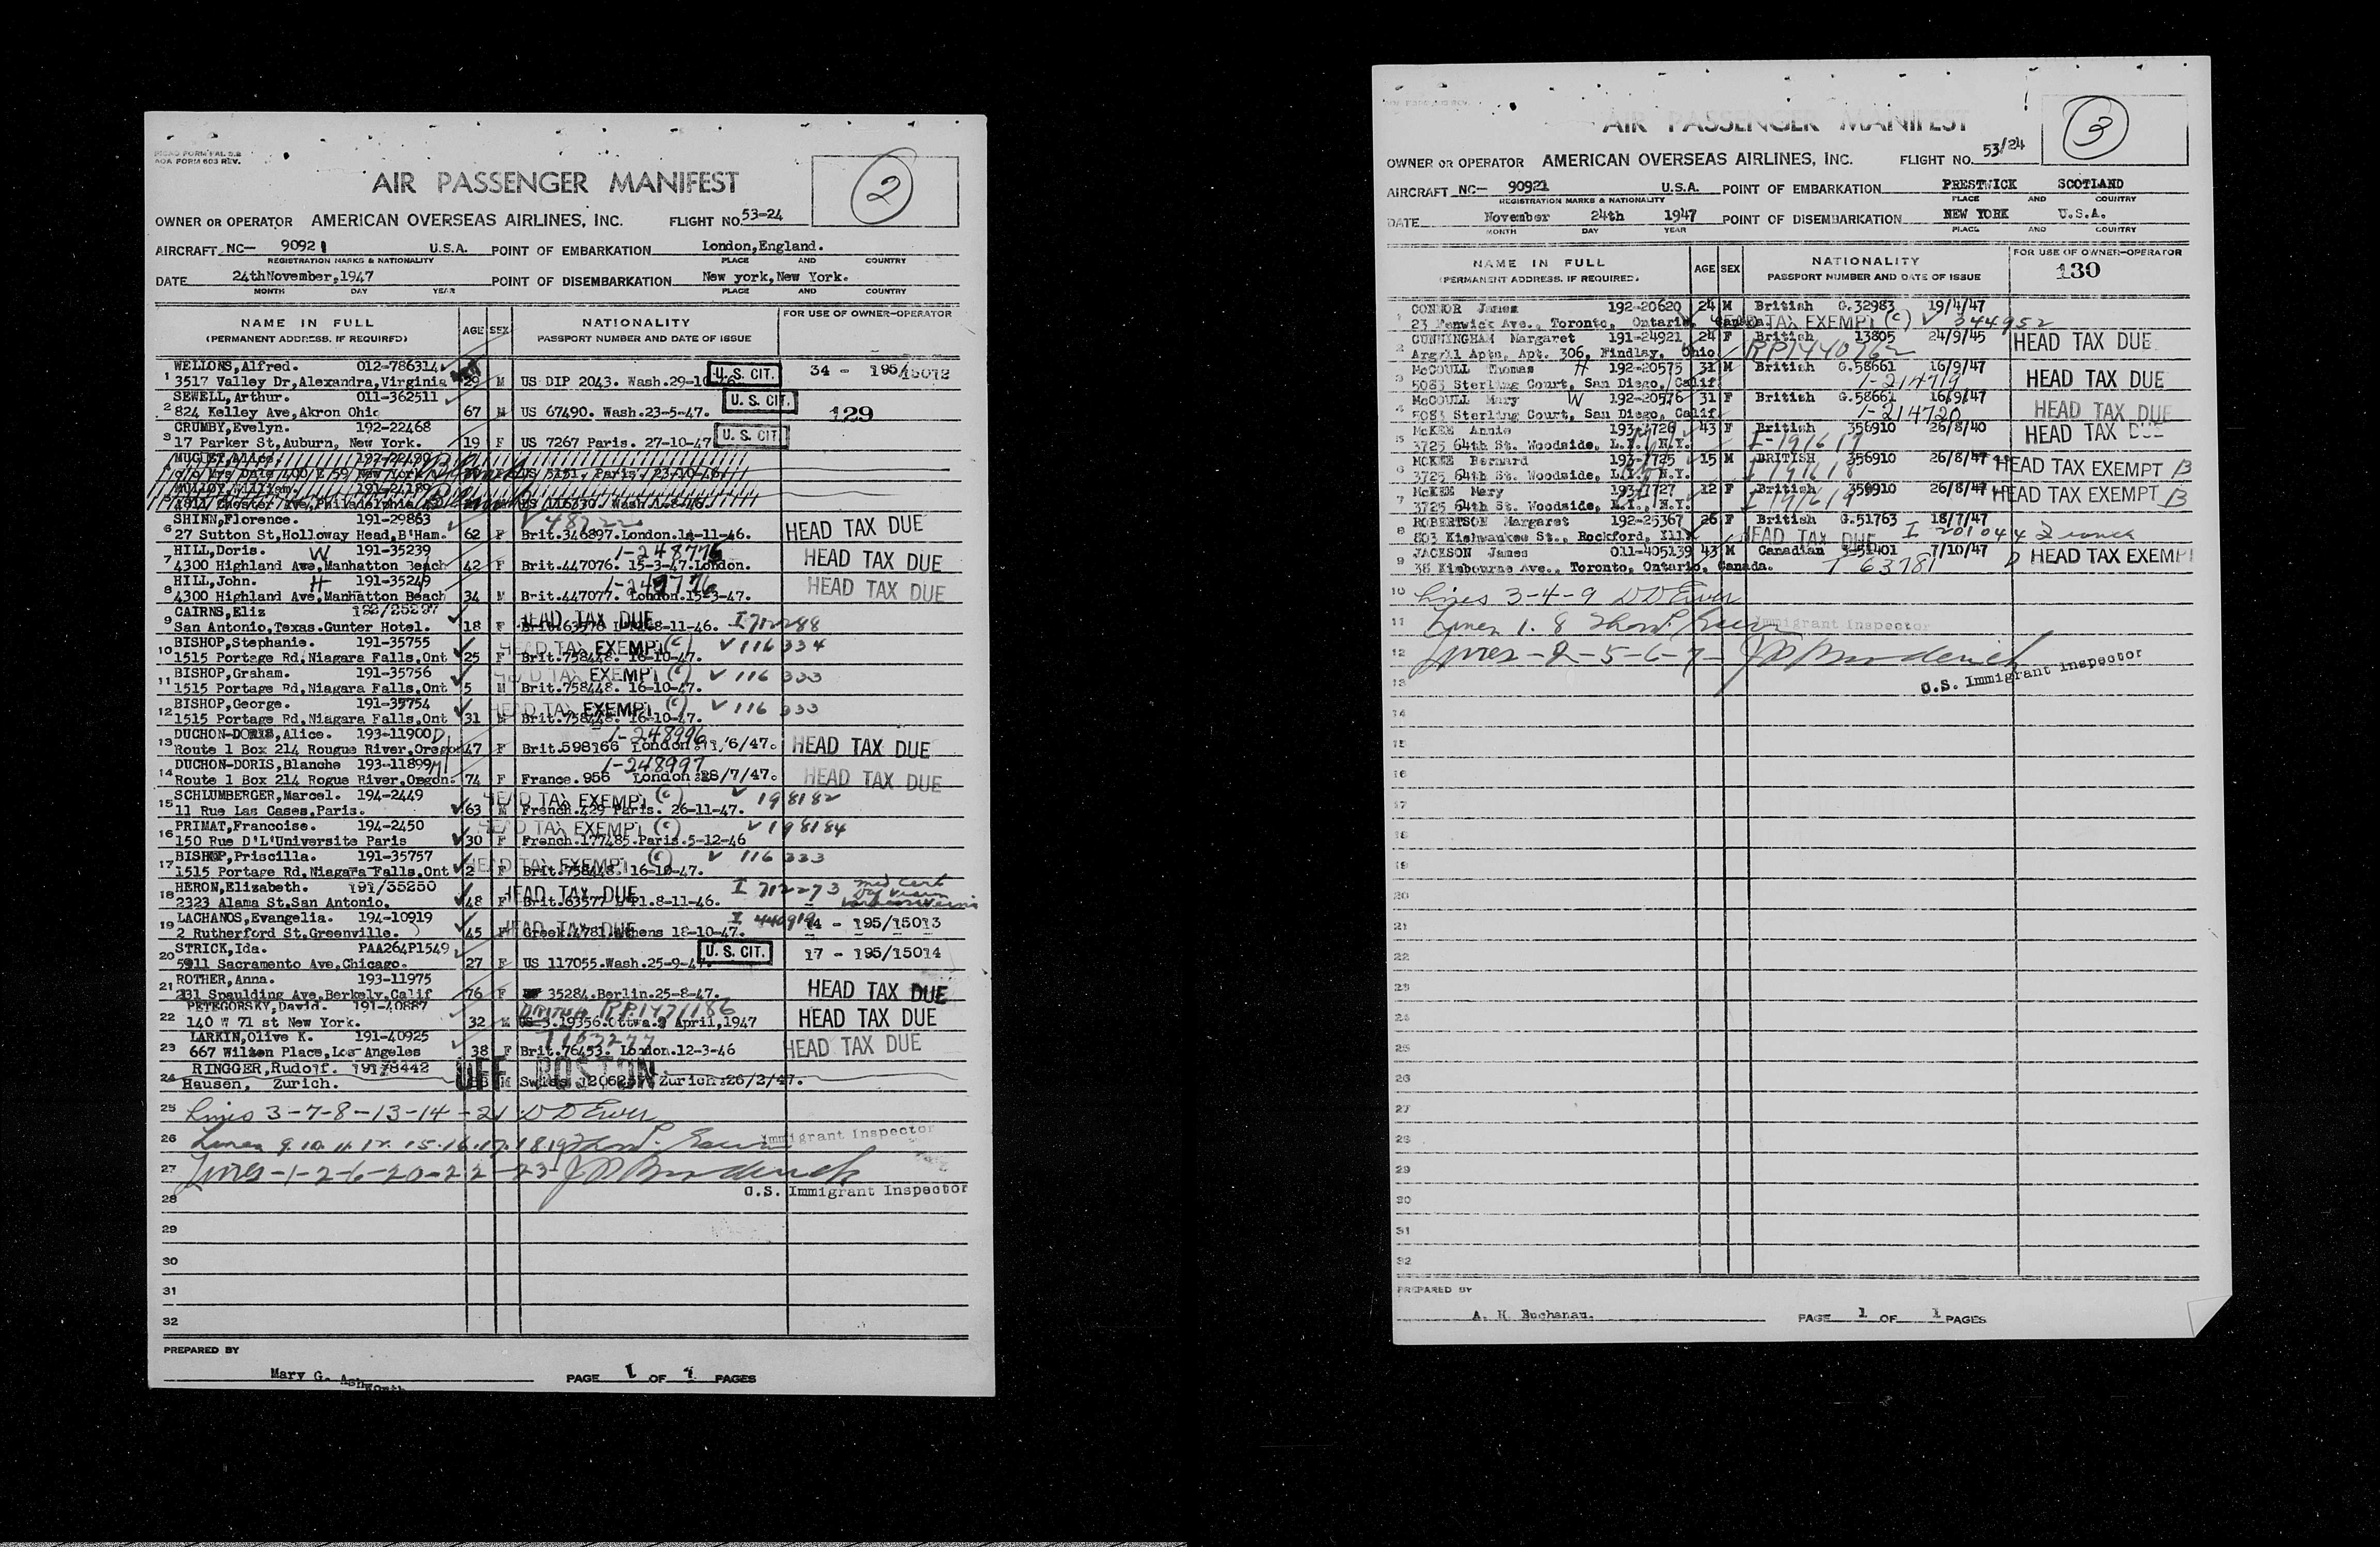 PICAO FORM FAL 5.2
AOA FORM 603 REV.
2
AIR PASSENGER MANIFEST
OWNER OR OPERATOR AMERICAN OVERSEAS AIRLINES, INC. FLIGHT NO. 53-24
AIRCRAFT NC- 90921 U.S.A. POINT OF EMBARKATION London,England.
REGISTRATION MARKS & NATIONALITY PLACE AND COUNTRY
DATE 24thNovember,1947 POINT OF DISEMBARKATION New york,New York.
MONTH DAY YEAR PLACE AND COUNTRY
NAME IN FULL AGE SEX NATIONALITY FOR USE OF OWNER-OPERATOR
(PERMANENT ADDRESS. IF REQUIRED) PASSPORT NUMBER AND DATE OF ISSUE
WELLONS,Alfred. 012-786314
1 3517 Valley Dr,Alexandra,Virginia 29 M US DIP 2043. Wash.29-10 U. S. CIT. 34 - 195/15012
SEWELL,Arthur. 011-362511
2 824 Kelley Ave,Akron Ohio 67 M US 67490. Wash.23-5-47. U. S. CIT. 129
CRUMBY,Evelyn. 192-22468
3 17 Parker St,Auburn, New York. 19 F US 7267 Paris. 27-10-47 U. S. CIT.
MUGUET,Alice. 192-22490
4 c/o Mrs Dale 400 E 59 New York F US 5151, Paris, 23-10-46
MULLOY,William. 191-21189
5 1911 Chester Ave,Philadelphia US 116330. Wash.1-8-46.
SHINN,Florence. 191-29863
6 27 Sutton St,Holloway Head,B'Ham. 62 F Brit.346897.London.14-11-46. HEAD TAX DUE
HILL,Doris. W 191-35239 1-248775
7 4300 Highland Ave,Manhatton Beach 42 F Brit.447076. 15-3-47.London. HEAD TAX DUE
HILL,John. H 191-35249 1-248776
8 4300 Highland Ave,Manhatton Beach 34 M Brit.447077. London.15-3-47. HEAD TAX DUE
CAIRNS,Eliz 192/25297 HEAD TAX DUE
9 San Antonio,Texas.Gunter Hotel. 18 F Brit.63578 8-11-46. I 712288
BISHOP,Stephanie. 191-35755 HEAD TAX EXEMPT (C) V 116334
10 1515 Portage Rd,Niagara Falls,Ont 25 F Brit.758448. 16-10-47.
BISHOP,Graham. 191-35756 HEAD TAX EXEMPT (C) V 116 333
11 1515 Portage Rd,Niagara Falls,Ont 5 M Brit.758448. 16-10-47.
BISHOP,George. 191-35754 HEAD TAX EXEMPT (C) V 116 333
12 1515 Portage Rd,Niagara Falls,Ont 31 M Brit.758448. 16-10-47.
DUCHON-DORIS,Alice. 193-11900 D 1-248996
13 Route 1 Box 214 Rougue River,Oregon 47 F Brit.598166 London /6/47. HEAD TAX DUE
DUCHON-DORIS,Blanche 193-11899 M 1-248997
14 Route 1 Box 214 Rogue River,Oregon. 74 F France.956 London 28/7/47. HEAD TAX DUE
SCHLUMBERGER,Marcel. 194-2449 HEAD TAX EXEMPT (C) V 198182
15 11 Rue Las Cases,Paris. 63 M French.429 Paris. 26-11-47.
PRIMAT,Francoise. 194-2450 HEAD TAX EXEMPT (C) V 198184
16 150 Rue D'L'Universite Paris 30 F French.177485.Paris.5-12-46
BISHOP,Priscilla. 191-35757 HEAD TAX EXEMPT (C) V 116 333
17 1515 Portage Rd,Niagara Falls,Ont 2 F Brit.758448. 16-10-47.
HERON,Elizabeth. 191/35250 HEAD TAX DUE I 712273 med cert
18 2323 Alama St.San Antonio. 48 F Brit.63577 8-11-46.
LACHANOS,Evangelia. 194-10919 HEAD TAX DUE I 440919
19 2 Rutherford St,Greenville. 45 F Greek.4781.Athens 18-10-47. 14 - 195/15013
STRICK,Ida. PAA264P1549
20 5911 Sacramento Ave,Chicago. 27 F US 117055.Wash.25-9-47. U. S. CIT. 17 - 195/15014
ROTHER,Anna. 193-11975
21 231 Spaulding Ave,Berkely,Calif 76 F 35284.Berlin.25-8-47. HEAD TAX DUE
PETEGORSKY,David. 191-40887 British RP1471186
22 140 W 71 st New York. 32 M US 3.19356.Ottwa.9 April,1947 HEAD TAX DUE
LARKIN,Olive K. 191-40925
23 667 Wilton Place,Los Angeles 38 F Brit.76453. London.12-3-46 HEAD TAX DUE
RINGGER,Rudolf. 191/8442 OFF BOSTON
24 Hausen, Zurich. M Swiss Zurich.26/2/47.
25 Lines 3-7-8-13-14-21 D D Ewer
26 Lines 9. 10. 11. 12. 15. 16. 17. 18. 19 Immigrant Inspector
27 Lines-1-2-6-20-22-23- J P Broderick
28 U.S. Immigrant Inspector
29
30
31
32
PREPARED BY
Mary G. Ashworth PAGE 1 OF 1 PAGES
3
AIR PASSENGER MANIFEST
OWNER OR OPERATOR AMERICAN OVERSEAS AIRLINES, INC. FLIGHT NO. 53/24
AIRCRAFT NC- 90921 U.S.A. POINT OF EMBARKATION PRESTWICK SCOTLAND
REGISTRATION MARKS & NATIONALITY PLACE AND COUNTRY
DATE November 24th 1947 POINT OF DISEMBARKATION NEW YORK U.S.A.
MONTH DAY YEAR PLACE AND COUNTRY
NAME IN FULL AGE SEX NATIONALITY FOR USE OF OWNER-OPERATOR
(PERMANENT ADDRESS. IF REQUIRED) PASSPORT NUMBER AND DATE OF ISSUE 130
CONNOR James 192-20620 24 M British G.32983 19/4/47
1 23 Fenwick Ave., Toronto, Ontario, Canada. HEAD TAX EXEMPT (C) V 344952
CUNNINGHAM Margaret 191-24921 24 F British 13805 24/9/45 HEAD TAX DUE
2 Argyll Apts, Apt. 306, Findlay, Ohio RP1440762
McCOULL Thomas H 192-20575 31 M British G.58661 16/9/47 HEAD TAX DUE
3 5083 Sterling Court, San Diego, Calif 1-214719
McCOULL Mary W 192-20576 31 F British G.58661 16/9/47 HEAD TAX DUE
4 5083 Sterling Court, San Diego, Calif. 1-214720
McKEE Annie 193-1726 43 F British 356910 26/8/40 HEAD TAX DUE
5 3725 64th St. Woodside, L.I., N.Y. I-191617
MCKEE Bernard 193-1725 15 M BRITISH 356910 26/8/47 HEAD TAX EXEMPT B
6 3725 64th St. Woodside, L.I., N.Y. I 191618
McKEE Mary 193-1727 12 F British 356910 26/8/47 HEAD TAX EXEMPT B
7 3725 64th St. Woodside, L.I., N.Y. I 191619
ROBERTSON Margaret 192-25367 26 F British G.51763 18/7/47
8 803 Kishwaukee St., Rockford, Ill HEAD TAX DUE I 201044
JACKSON James 011-405139 43 M Canadian 3-51401 7/10/47 D HEAD TAX EXEMPT
9 38 Kimbourne Ave., Toronto, Ontario, Canada. 63781
10 Lines 3-4-9 D D Ewer
11 Lines 1. 8 Immigrant Inspector
12 Lines-2-5-6-7- J P Broderick
13 U.S. Immigrant Inspector
14
15
16
17
18
19
20
21
22
23
24
25
26
27
28
29
30
31
32
PREPARED BY
A. H. Buchanan. PAGE 1 OF 1 PAGES